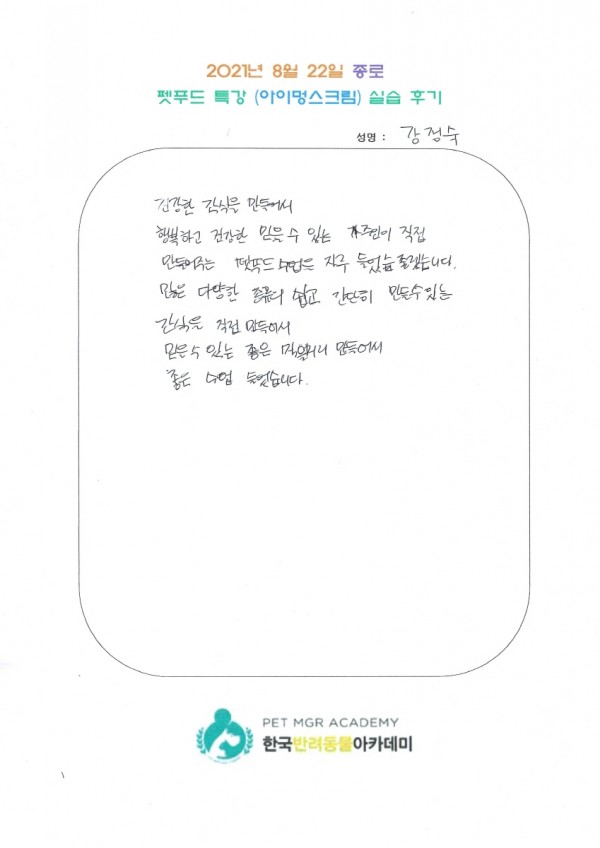 2021년 8월 22일 종로
펫푸드 특강 (아이멍스크림) 실습 후기
성명 : 강정숙
건강한 간식을 만들어서
행복하고 건강한 믿을 수 있는 주인이 직접
만들어주는 펫푸드 수업은 자주 들었습 좋겠습니다.
많은 다양한 종류의 쉽고 간단히 만들수있는
간식을 직접 만들어서
믿을수 있는 좋은 만들어서
좋은 수업 들었습니다.
PET MGR ACADEMY
한국반려동물아카데미